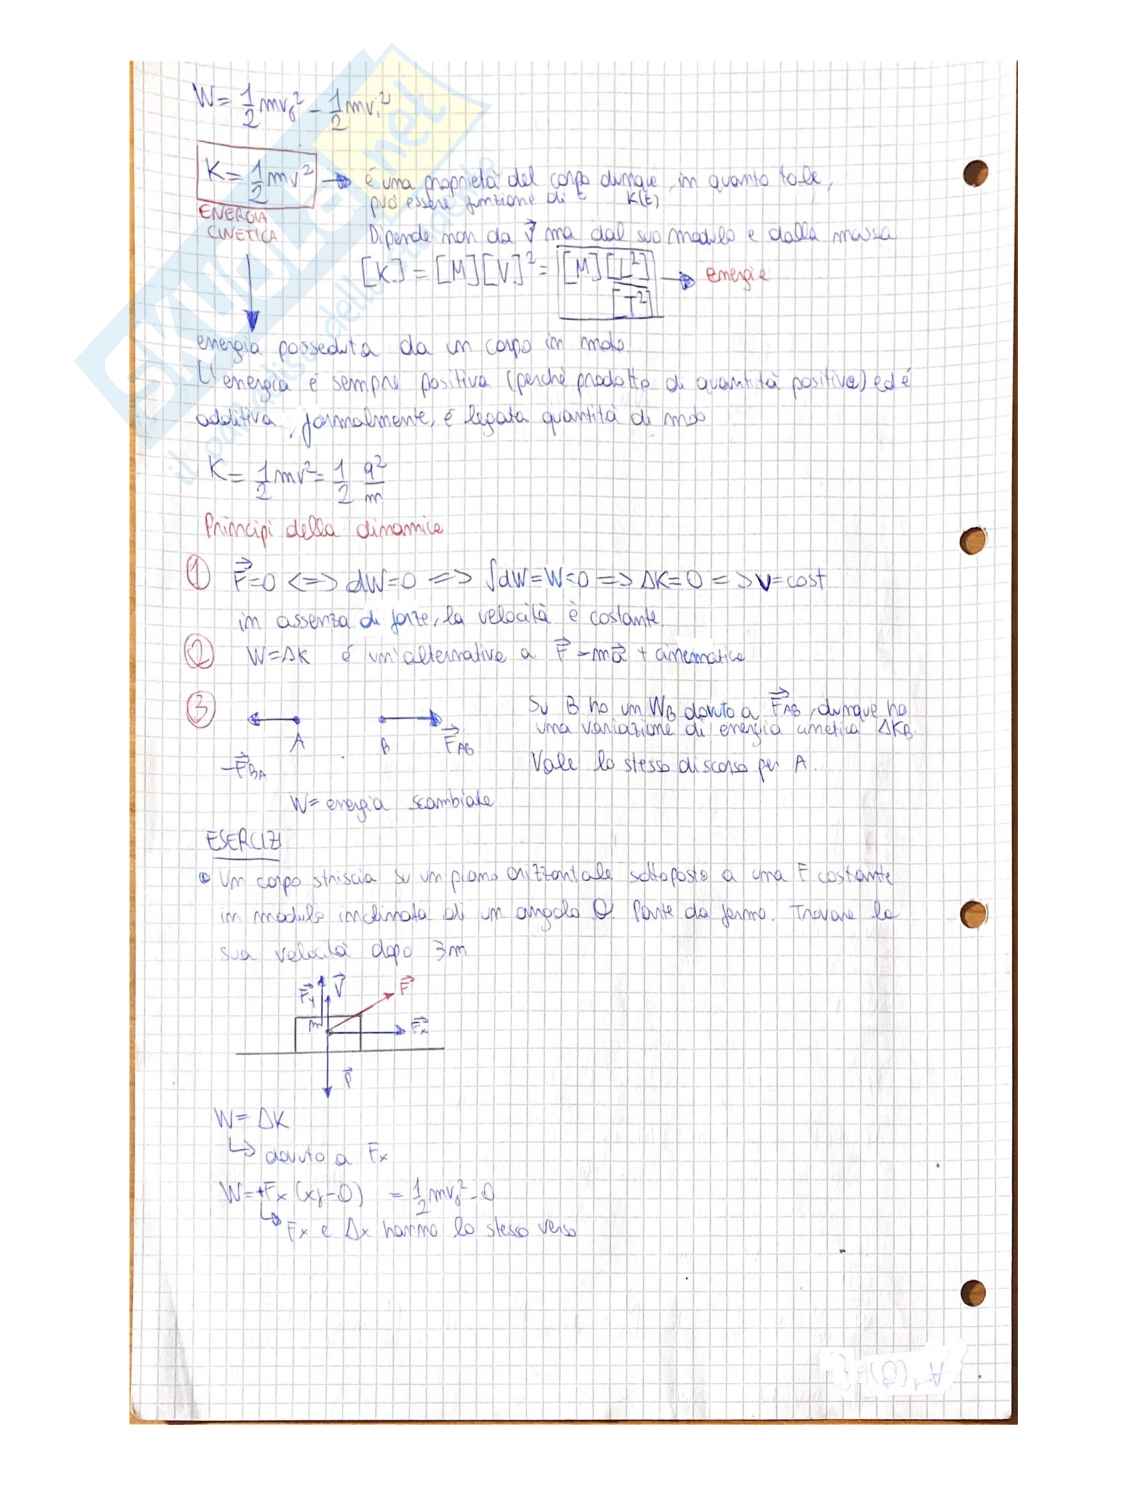 W = 1/2 mv_f² - 1/2 mv_i²
K = 1/2 mv² → è una proprietà del corpo dunque, in quanto tale,
può essere funzione di t K(t)
ENERGIA
CINETICA
Dipende non da v⃗ ma dal suo modulo e dalla massa
[K] = [M][V]² = [M][L²]/[T²] → energie
energia posseduta da un corpo in moto
L'energia è sempre positiva (perché prodotto di quantità positive) ed è
additiva, formalmente, è legata quantità di moto
K = 1/2 mv² = 1/2 q²/m
Principi della dinamica
① F⃗=0 <=> dW=0 => ∫dW=W=0 => ΔK=0 => v=cost
in assenza di forze, la velocità è costante
② W=ΔK è un'alternativa a F⃗=ma⃗ + cinematica
③ Su B ho un W_B dovuto a F⃗_AB, dunque ho
una variazione di energia cinetica ΔK_B
A B F⃗_AB
-F⃗_BA
Vale lo stesso discorso per A.
W= energia scambiata
ESERCIZI
Un corpo striscia su un piano orizzontale sottoposto a una F costante
in modulo inclinata di un angolo θ. Parte da fermo. Trovare la
sua velocità dopo 3m
F⃗_y V⃗ F⃗
m F⃗_x
P⃗
W = ΔK
↳ dovuto a F_x
W = +F_x (x_f - 0) = 1/2 mv_f² - 0
↳ F_x e Δx hanno lo stesso verso
SKUOLA.net